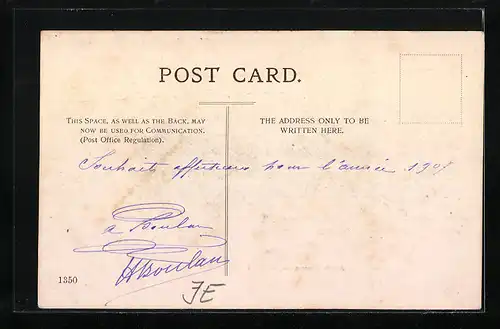 POST CARD.
THIS SPACE, AS WELL AS THE BACK, MAY
NOW BE USED FOR COMMUNICATION.
(Post Office Regulation).
THE ADDRESS ONLY TO BE
WRITTEN HERE.
Souhaits affectueux pour l'année 1907
a Boulan
HBoulan
1350
JE